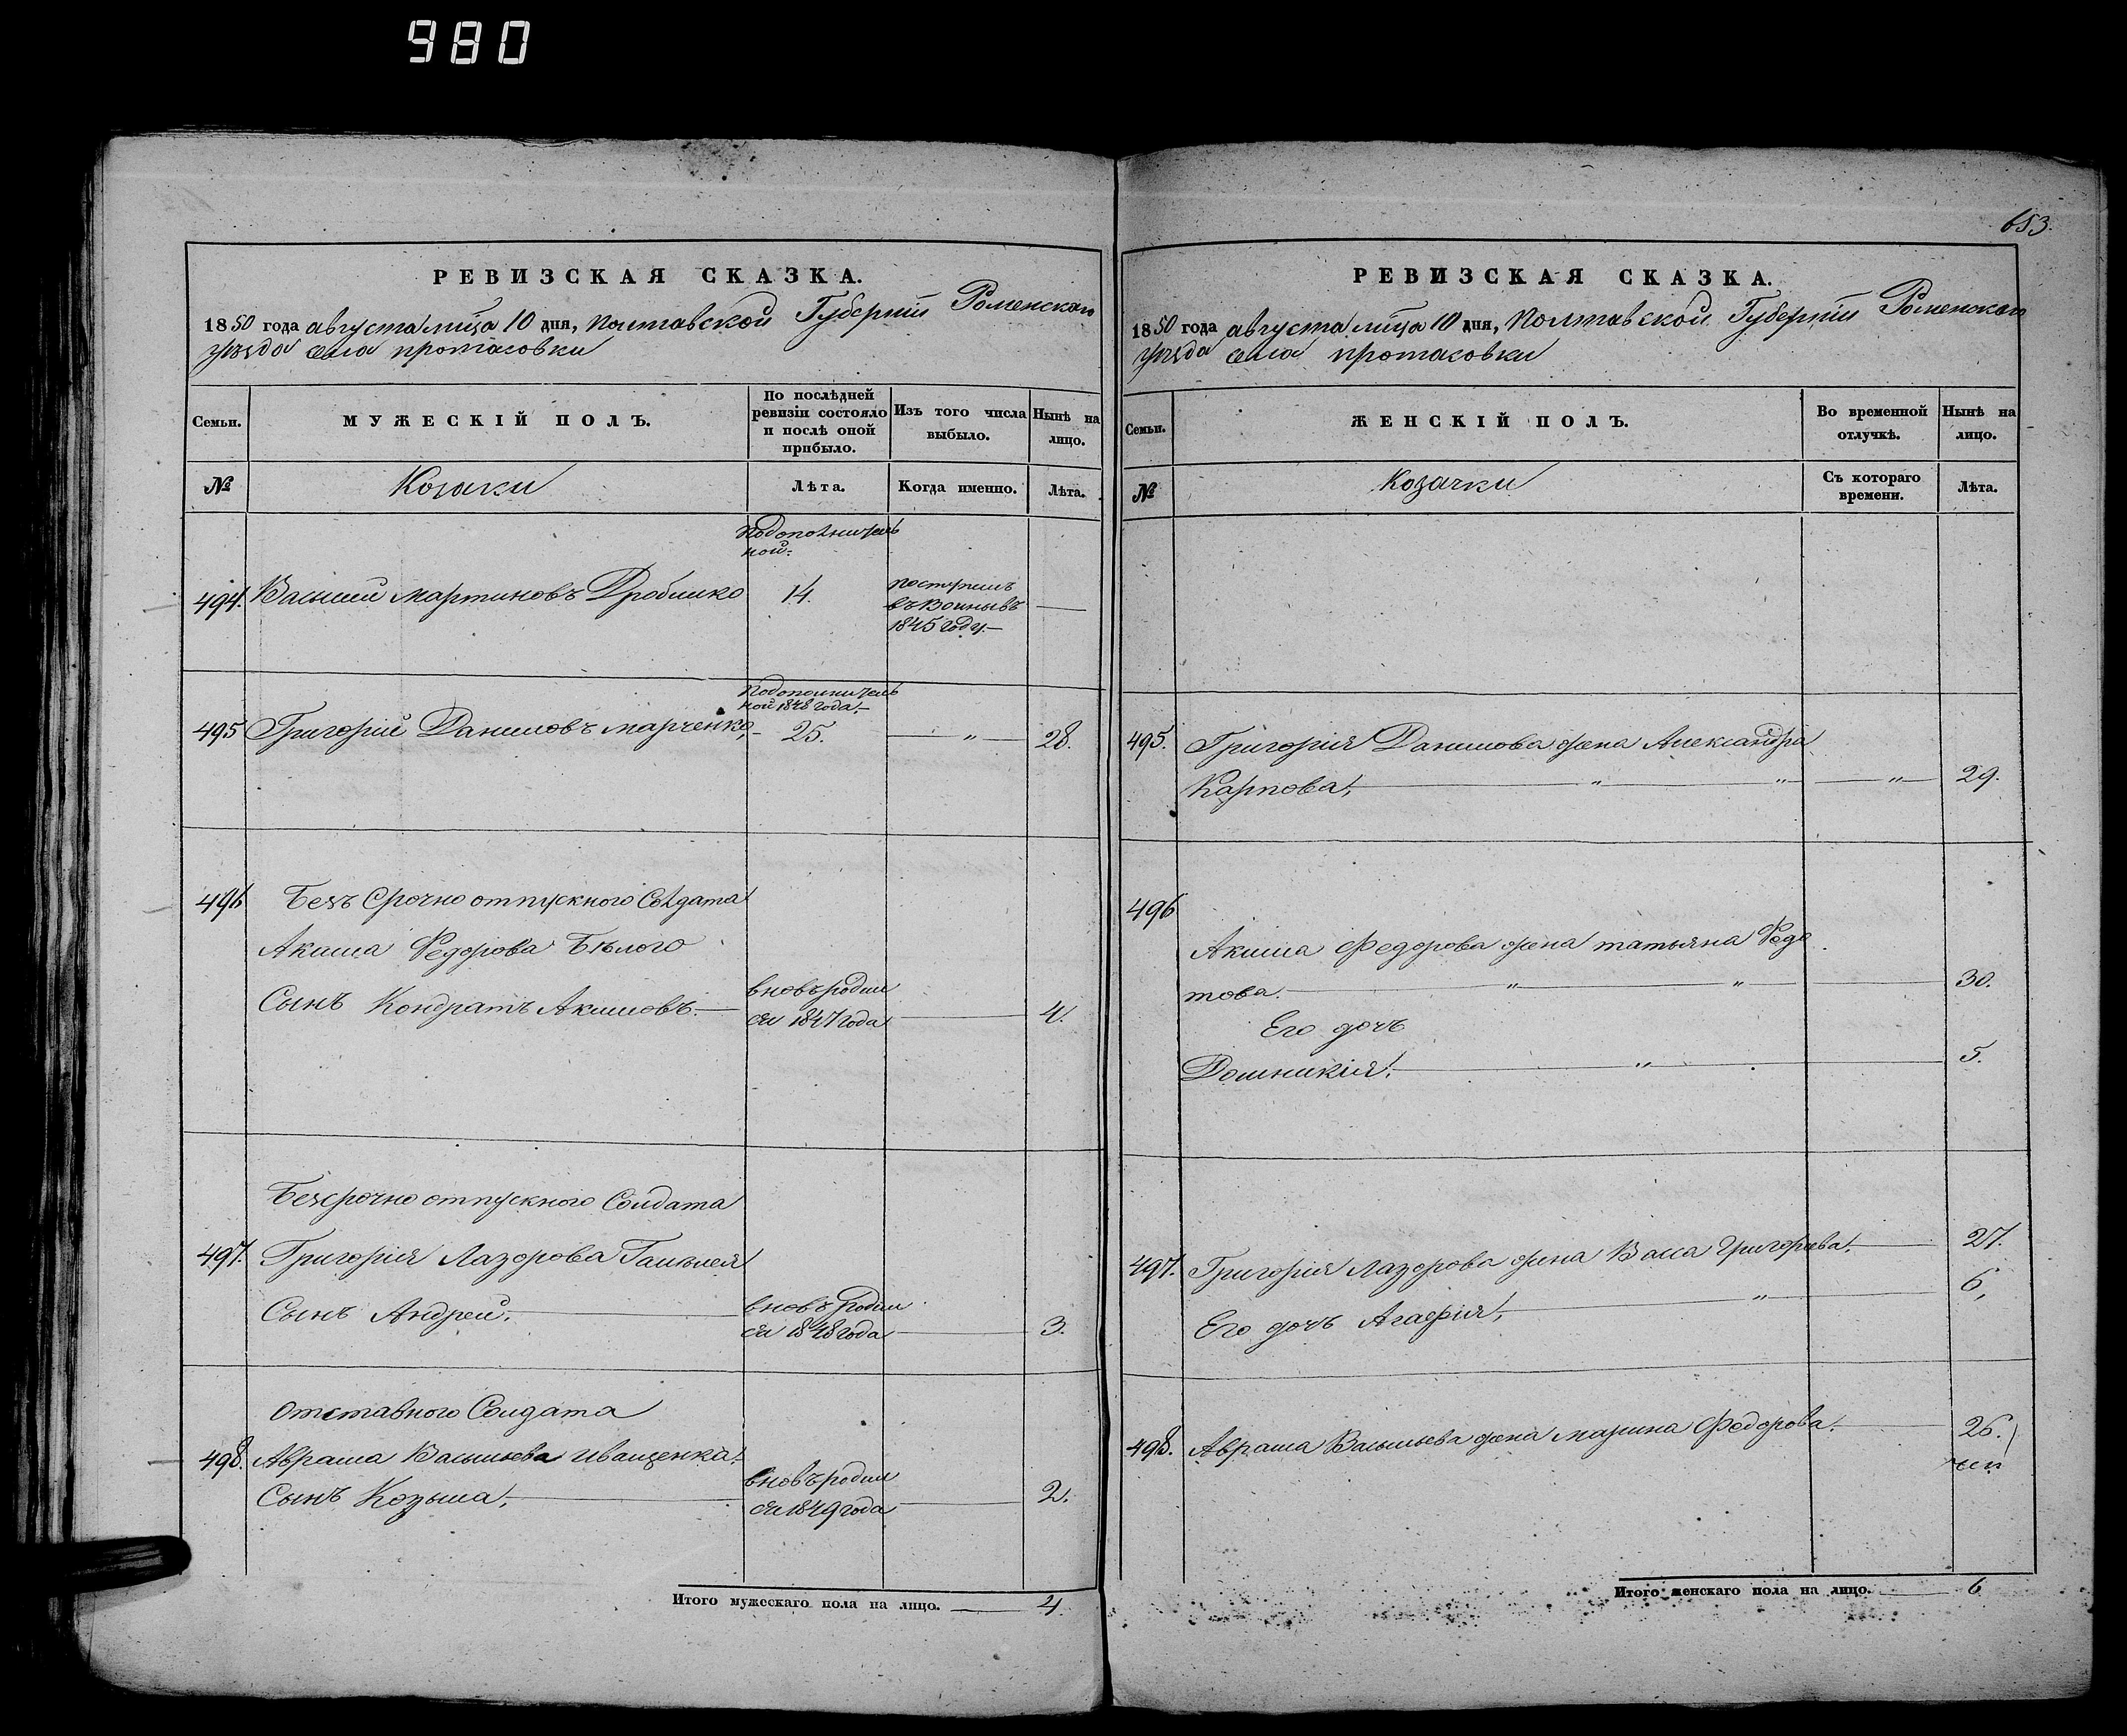 980
РЕВИЗСКАЯ СКАЗКА.
1850 года августа мца 10 дня, Полтавской Губерніи Роменскаго
уѣзда села протасовки
Семьи.
МУЖЕСКІЙ ПОЛЪ.
По послѣдней
ревизіи состояло
и послѣ оной
прибыло.
Изъ того числа
выбыло.
Нынѣ на
лицо.
№
Козаки
Лѣта.
Когда именно.
Лѣта.
Подополнитель
ной.
494. Василий мартиновъ 14.
поступилъ
1845 году.—
Подополнитель
ной 1848 года.—
495 Григорій Даниловъ марченко, 25. — " — 28.
496 Безъ Срочно отпускного Солдата
Акима Федорова Бѣлого
Сынъ Кондратъ Акимовъ.—
вновь родил
ся 1847 года — 4.
Безсрочно отпускного Солдата
497. Григорія Лазорова
Сынъ Андрей.—
вновь родил
ся 1848 года — 3.
Отставного Солдата
498. Аврама Васильева Иващенка.
Сынъ Козьма,—
вновь родил
ся 1849 года — 2.
Итого мужескаго пола на лицо. — 4.
653.
РЕВИЗСКАЯ СКАЗКА.
1850 года августа мца 10 дня, Полтавской Губерніи Роменскаго
уѣзда села протасовки
Семьи.
ЖЕНСКІЙ ПОЛЪ.
Во временной
отлучкѣ.
Нынѣ на
лицо.
№
Козачки
Съ котораго
времени.
Лѣта.
495. Григорія Данилова жена Александра
Карпова, — " — " — " — 29.
496
Акима Федорова жена татьяна Федо
това. — " — " — 30.
Его дочь
Домникія. — " — 5.
497. Григорія Лазорова жена Васса Григорьева. — 27.
Его дочь Агафія, — " — 6,
498. Аврама Васильева жена марина Федорова. — 26.
Итого женскаго пола на лицо. — 6